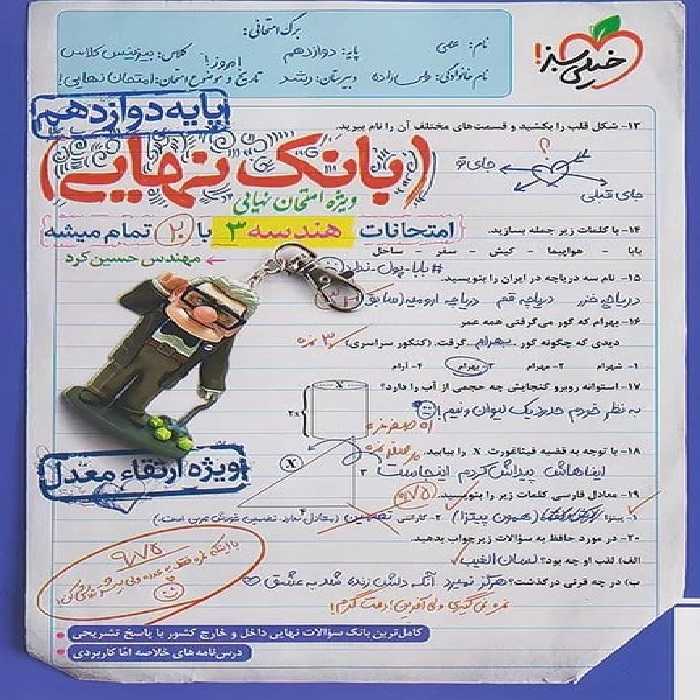 خیلی سبز!
برگ امتحانی:
نام: علی
پایه: دوازدهم
کلاس:
نام خانوادگی:
دبیرستان: رشد
تاریخ و موضوع امتحان: امروز! امتحان نهایی!
پایه دوازدهم
۱۳- شکل قلب را بکشید و قسمت‌های مختلف آن را نام ببرید.
(بانک نهایی)
جای تو
؟
جای قبلی
ویژه امتحان نهایی
امتحانات هندسه ۳ با ۲۰ تمام میشه
۱۴- با کلمات زیر جمله بسازید.
بابا - هواپیما - کیش - سفر - ساحل
مهندس حسین کرد
#بابا_پول_ندارد
۱۵- نام سه دریاچه در ایران را بنویسید.
دریاچه خزر دریاچه قم دریاچه ارومیه (سابق)
۱۶- بهرام که گور می‌گرفتی همه عمر
دیدی که چگونه گور ..بهرام.. گرفت. (کنکور سراسری)
۱- شهرام ۲- مهرام ۳- بهرام ۴- آرام
۱۷- استوانه روبرو گنجایش چه حجمی از آب را دارد؟
x
2x
به نظر خودم حدود یک لیوان و نیم!
۱۸- با توجه به قضیه فیثاغورث X را بیابید.
X
۳
۴
ایناهاش پیداش کردم اینجاست
ویژه ارتقاء معدل
۱۹- معادل فارسی کلمات زیر را بنویسید.
۹/۷۵
۱- پیتزا (همون پیتزا) ۲- گارانتی تضمین
۲۰- در مورد حافظ به سؤالات زیر جواب بدهید.
الف) لقب او چه بود؟ لسان الغیب
ب) در چه قرنی درگذشت؟ هرگز نمیرد آنکه دلش زنده شد به عشق
۹/۷۵
کامل‌ترین بانک سؤالات نهایی داخل و خارج کشور با پاسخ تشریحی
درس‌نامه‌های خلاصه اما کاربردی